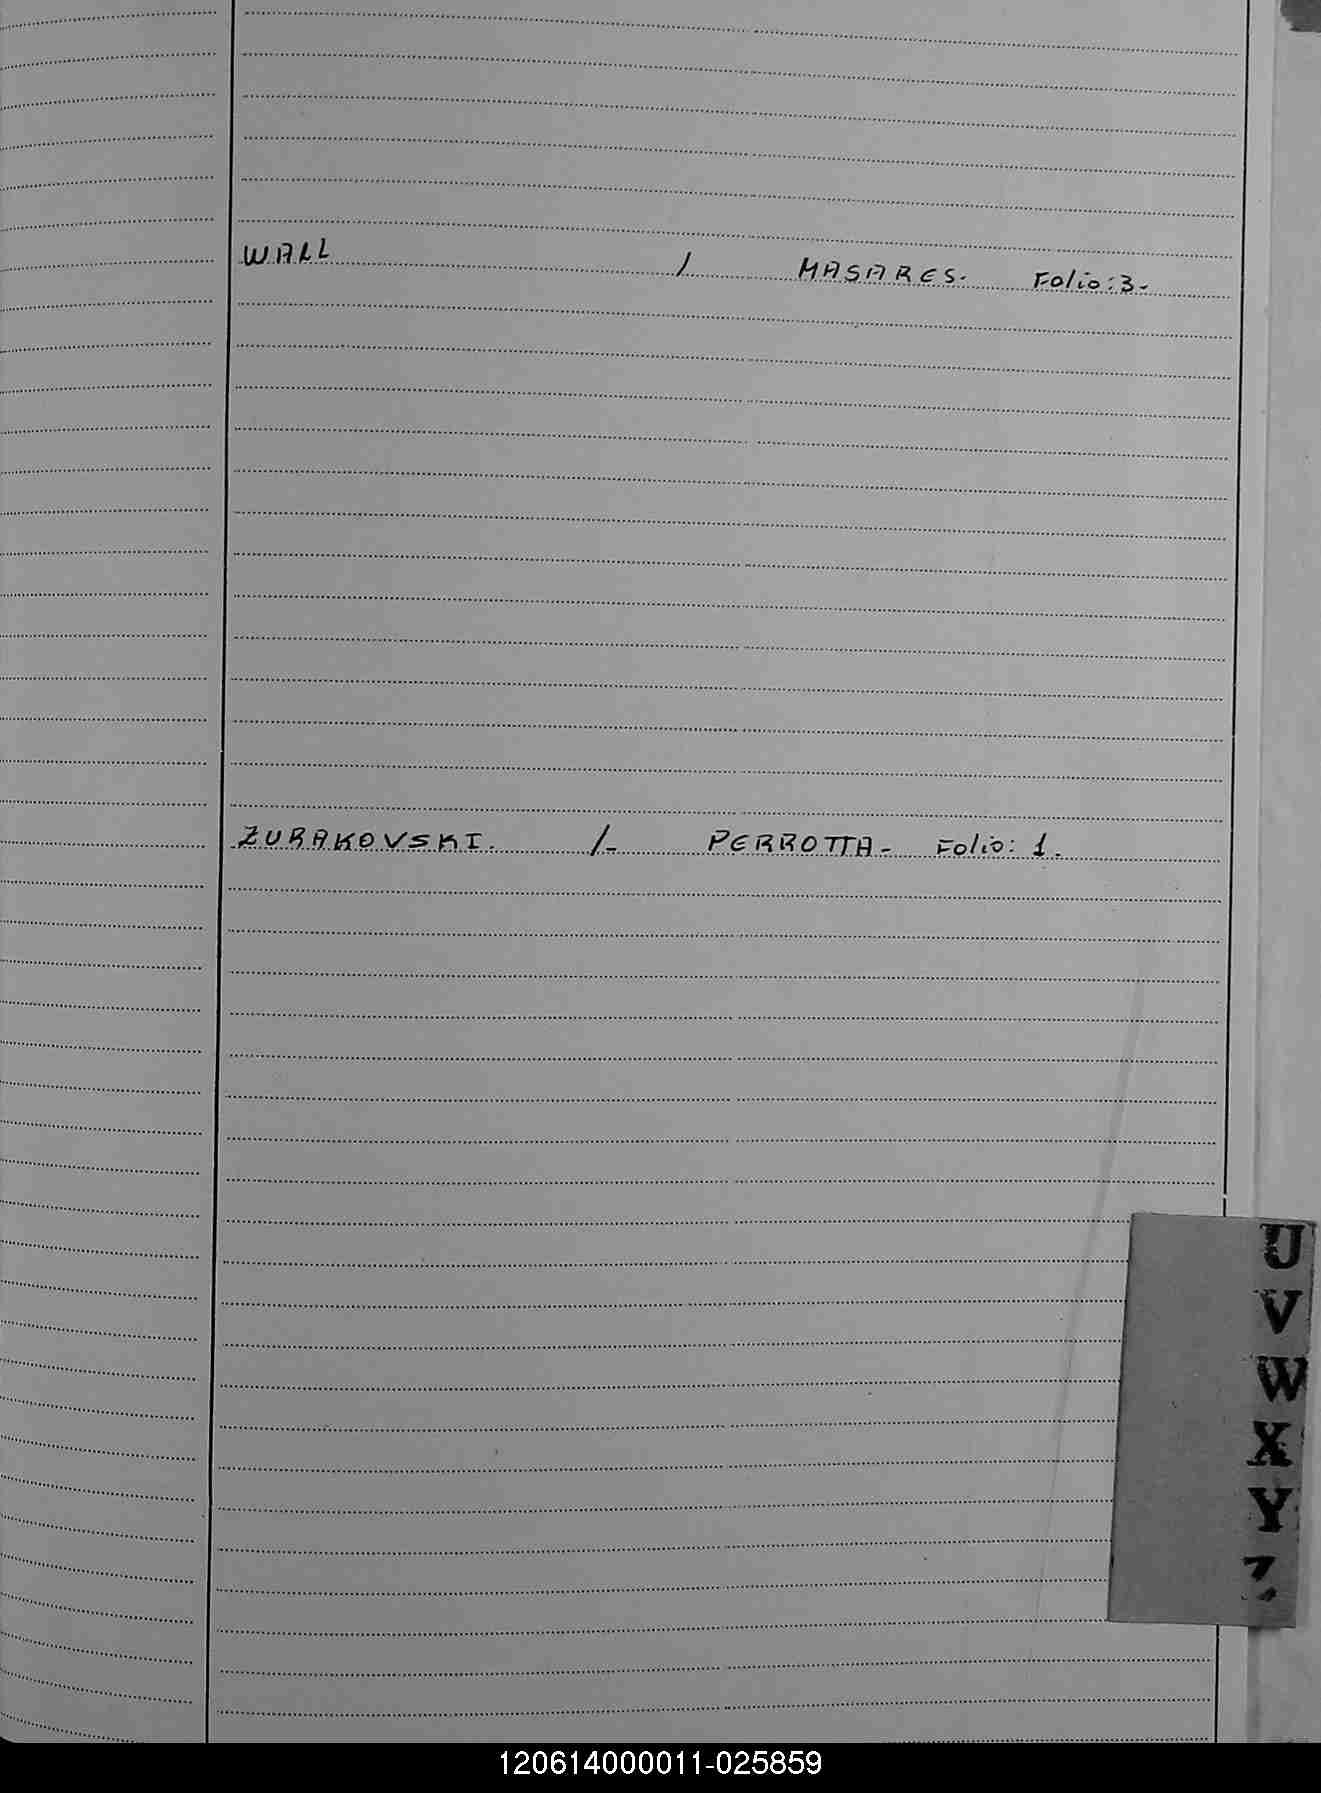 WALL / MASARES. Folio: 3-
ZURAKOVSKI. /- PERROTTA- Folio: 1.
U
V
W
X
Y
Z
120614000011-025859